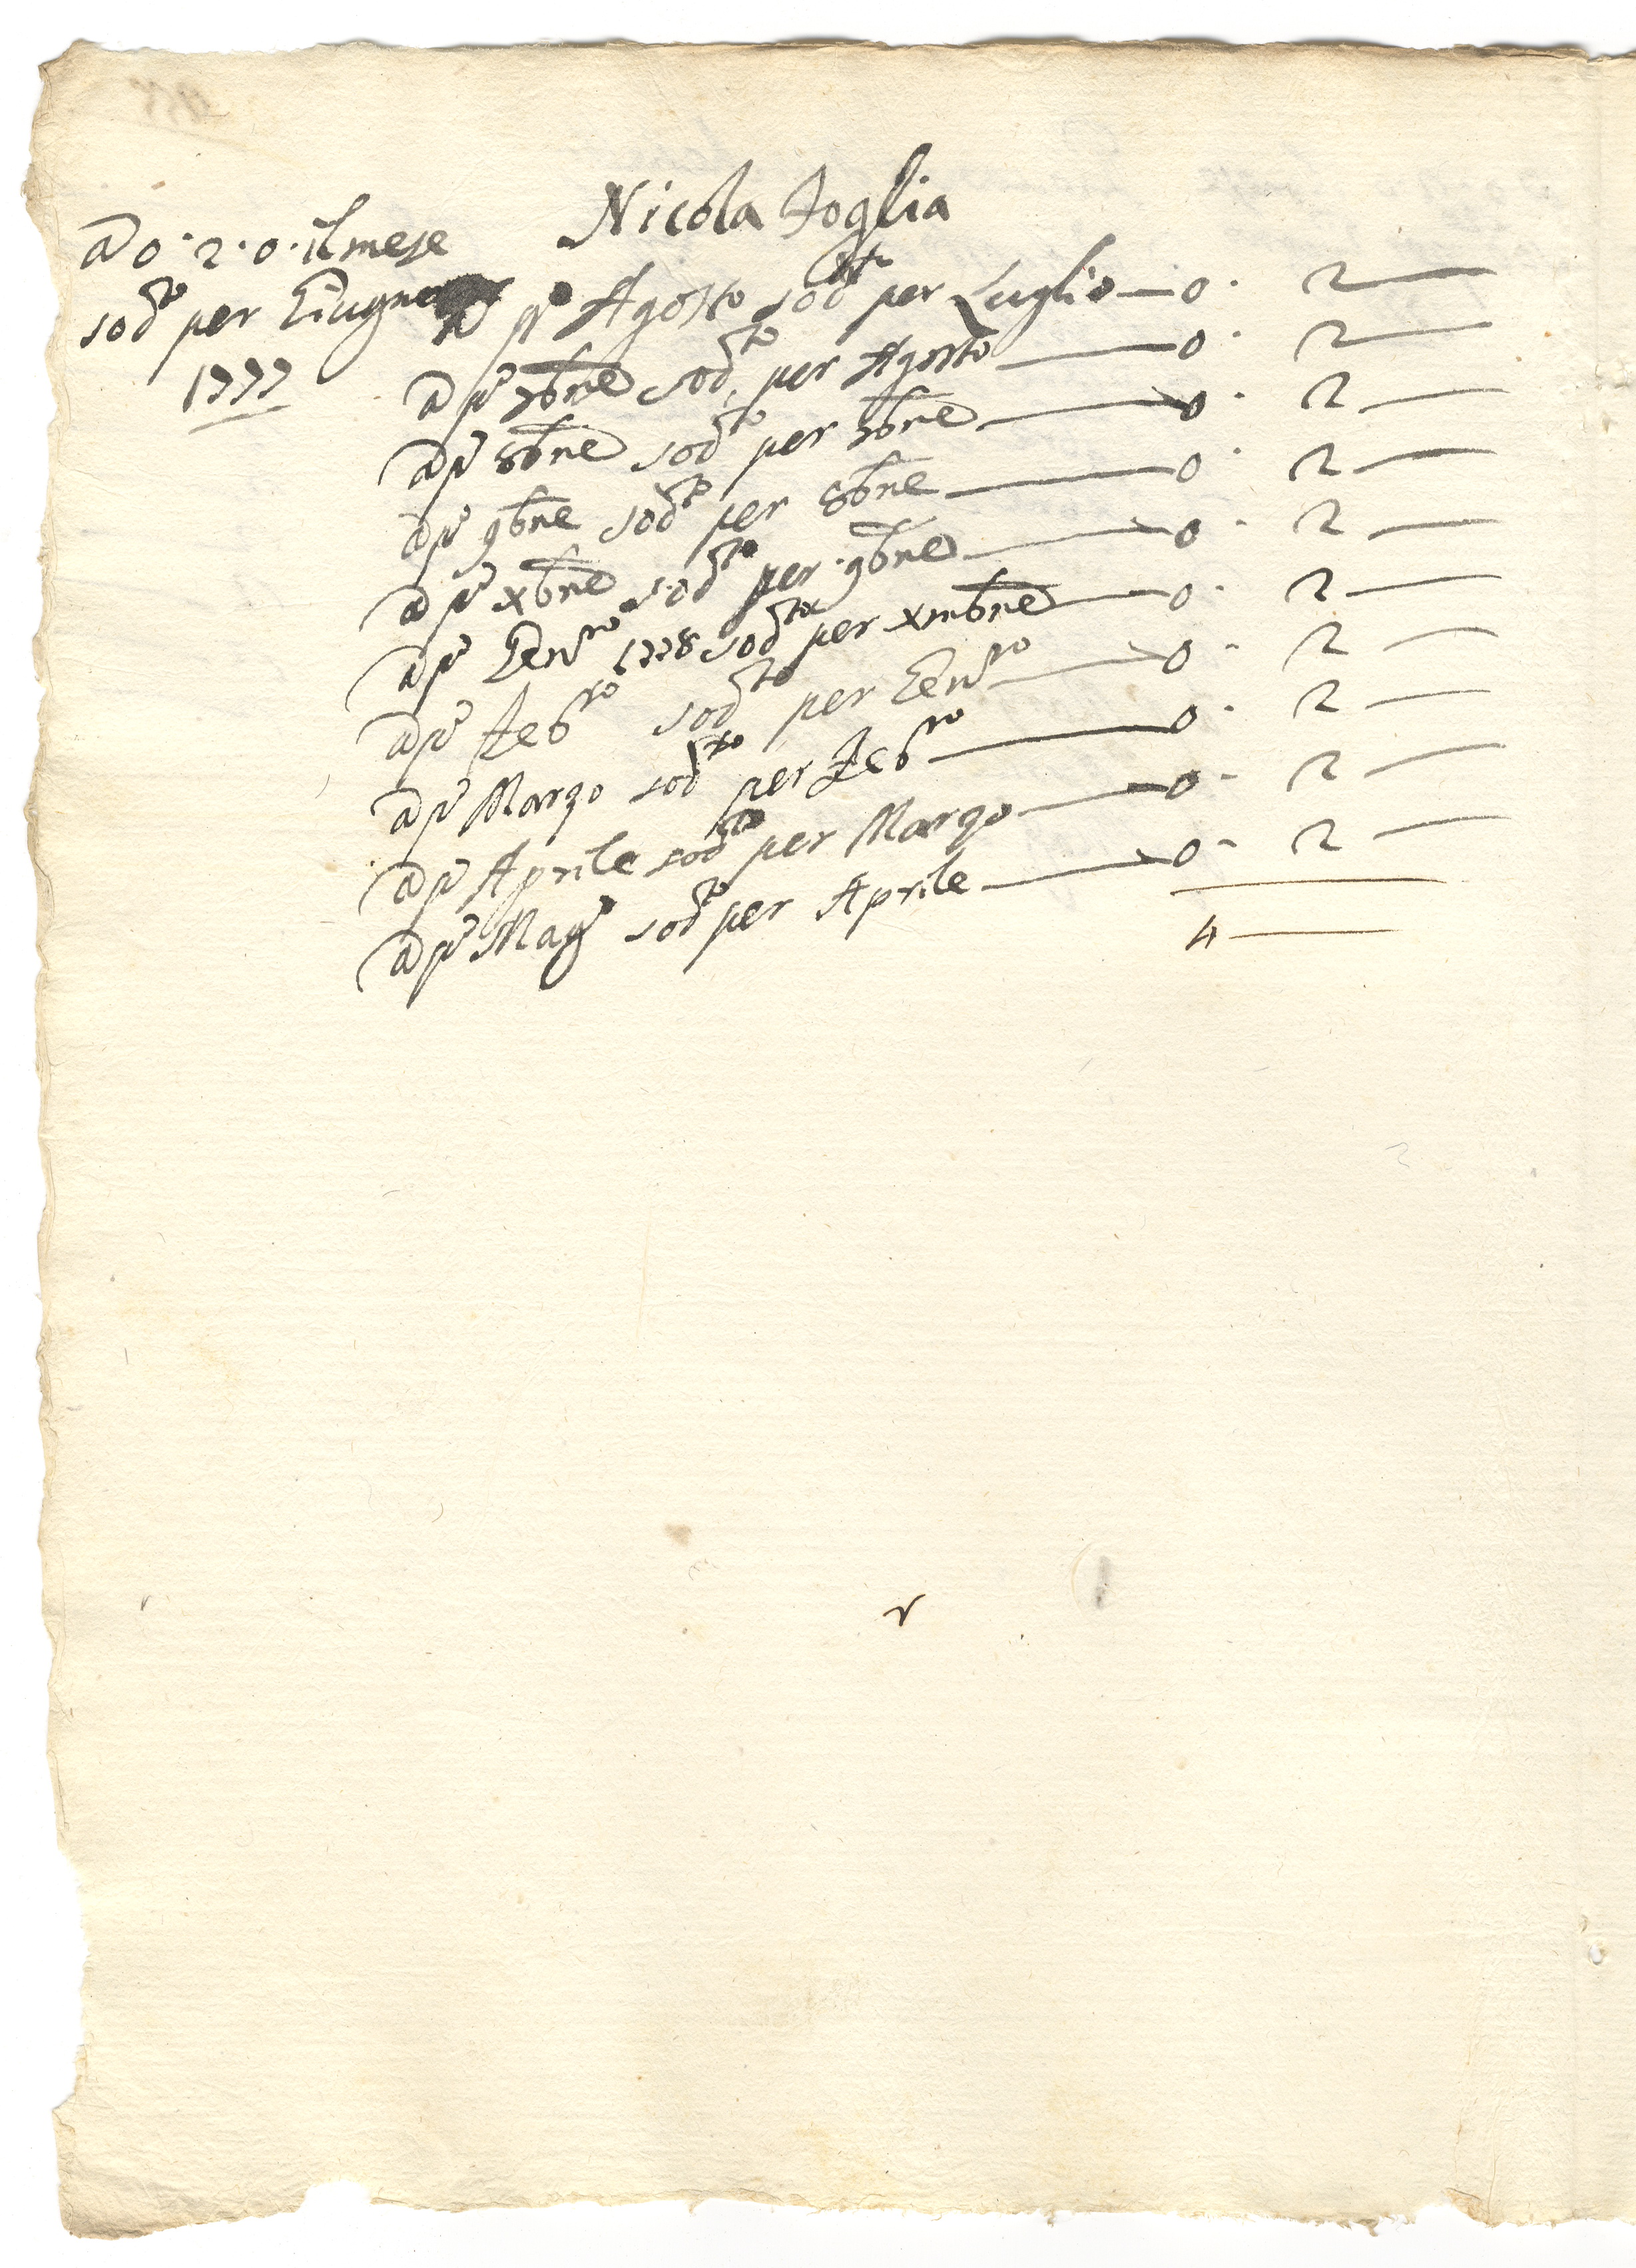 Nicola Foglia
a 0·2·0·il mese
sod.to per Giugno
1777
a p.o Agosto sod.to per Luglio — 0· 2 —
a p.o 7bre sod.to per Agosto — 0· 2 —
a p.o 8bre sod.to per 7bre — 0· 2 —
a p.o 9bre sod.to per 8bre — 0· 2 —
a p.o xbre sod.to per 9bre — 0· 2 —
a p.o Genn.ro 1778 sod.to per xmbre — 0· 2 —
a p.o Feb.ro sod.to per Genn.ro — 0· 2 —
a p.o Marzo sod.to per Feb.ro — 0· 2 —
a p.o Aprile sod.to per Marzo — 0· 2 —
a p.o Mag.o sod.to per Aprile — 0· 2 —
4 —